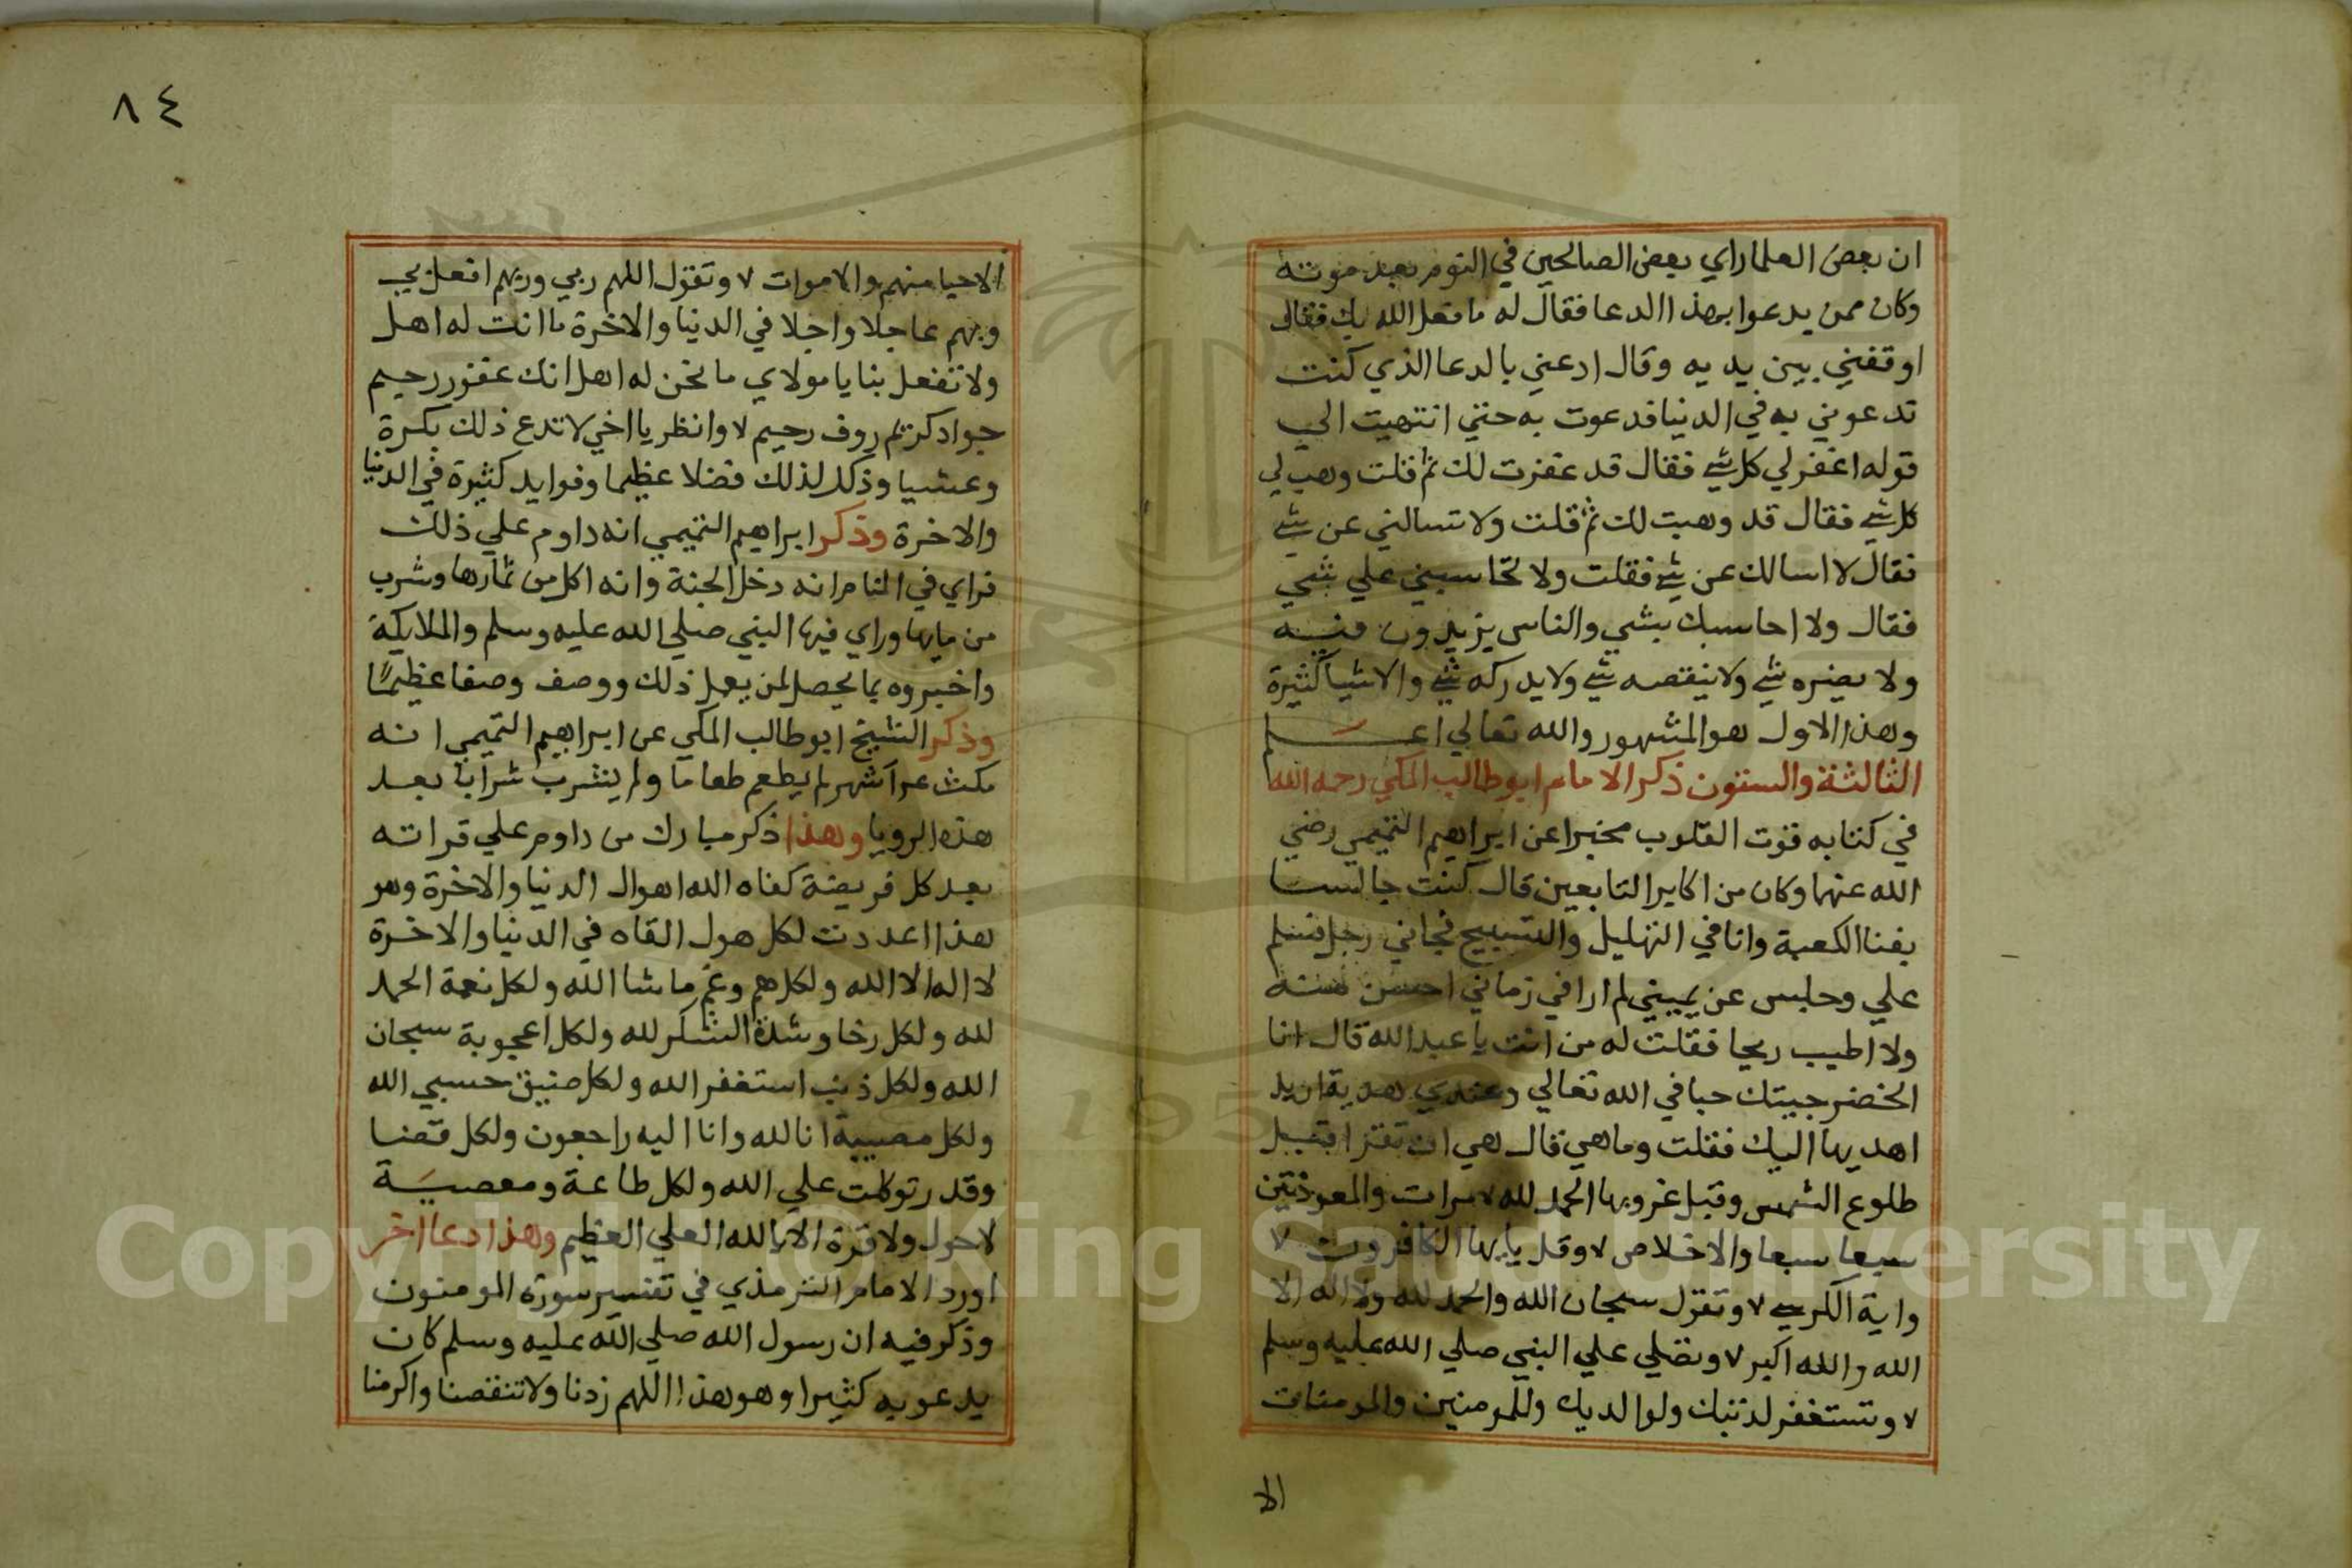 ان بعض العلما راي بعض الصالحين في النوم بعد موته
وكان ممن يدعوا بهذا الدعا فقال له ما فعل الله بك فقال
اوقفني بين يديه وقال ادعني بالدعا الذي كنت
تدعوني به في الدنيا فدعوت به حتي انتهيت الي
قوله اغفر لي كل شي فقال قد غفرت لك ثم قلت وهب لي
كل شي فقال قد وهبت لك ثم قلت ولا تسالني عن شي
فقال لا اسالك عن شي فقلت ولا تحاسبني علي شي
فقال ولا احاسبك بشي والناس يزيدون فيه
ولا يضره شي ولا ينقصه شي ولا يدركه شي والاشيا كثيرة
وهذا الاول هو المشهور والله تعالي اعلم
الثالثة والستون ذكر الامام ابو طالب المكي رحمه الله
في كتابه قوت القلوب مخبرا عن ابراهيم التميمي رضي
الله عنهما وكان من اكابر التابعين قال كنت جالسا
بفنا الكعبة وانا في التهليل والتسبيح فجاني رجل فسلم
علي وجلس عن يميني لم ارا في زماني احسن منه
ولا اطيب ريحا فقلت له من انت يا عبد الله قال انا
الخضر جيتك حبا في الله تعالي وعندي هدية اريد
اهديها اليك فقلت وما هي قال هي ان تقرا قبل
طلوع الشمس وقبل غروبها الحمد لله ٧ مرات والمعوذتين
سبعا سبعا والاخلاص ٧ وقل يايها الكافرون ٧
واية الكرسي ٧ وتقول سبحان الله والحمد لله ولا اله الا
الله والله اكبر ٧ وتصلي علي النبي صلي الله عليه وسلم
٧ وتستغفر لذنبك ولوالديك وللمومنين والمومنات
الا
٨٤
الاحيا منهم والاموات ٧ وتقول اللهم ربي وربهم افعل بي
وبهم عاجلا واجلا في الدنيا والاخرة ما انت له اهل
ولا تفعل بنا يا مولاي ما نحن له اهل انك غفور رحيم
جواد كريم روف رحيم ٧ وانظر يا اخي لا تدع ذلك بكرة
وعشيا وذكر لذلك فضلا عظيما وفوايد كثيرة في الدنيا
والاخرة وذكر ابراهيم التميمي انه داوم علي ذلك
فراي في المنام انه دخل الجنة وانه اكل من ثمارها وشرب
من مايها وراي فيها النبي صلي الله عليه وسلم والملايكة
واخبروه بما يحصل لمن يعمل ذلك ووصف وصفا عظيما
وذكر الشيخ ابو طالب المكي عن ابراهيم التميمي انه
مكث اشهر لم يطعم طعاما ولم يشرب شرابا بعد
هذه الرويا وهذا ذكر مبارك من داوم علي قراته
بعد كل فريضة كفاه الله اهوال الدنيا والاخرة وهو
هذا اعددت لكل هول القاه في الدنيا والاخرة
لا اله الا الله ولكل هم وغم ما شا الله ولكل نعمة الحمد
لله ولكل رخا وشدة الشكر لله ولكل اعجوبة سبحان
الله ولكل ذنب استغفر الله ولكل ضيق حسبي الله
ولكل مصيبة انا لله وانا اليه راجعون ولكل قضا
وقدر توكلت علي الله ولكل طاعة ومعصية
لا حول ولا قوة الا بالله العلي العظيم وهذا دعا اخر
اورد الامام الترمذي في تفسير سورة المومنون
وذكر فيه ان رسول الله صلي الله عليه وسلم كان
يدعو به كثيرا وهو هذا اللهم زدنا ولا تنقصنا واكرمنا
Copyright © King Saud University